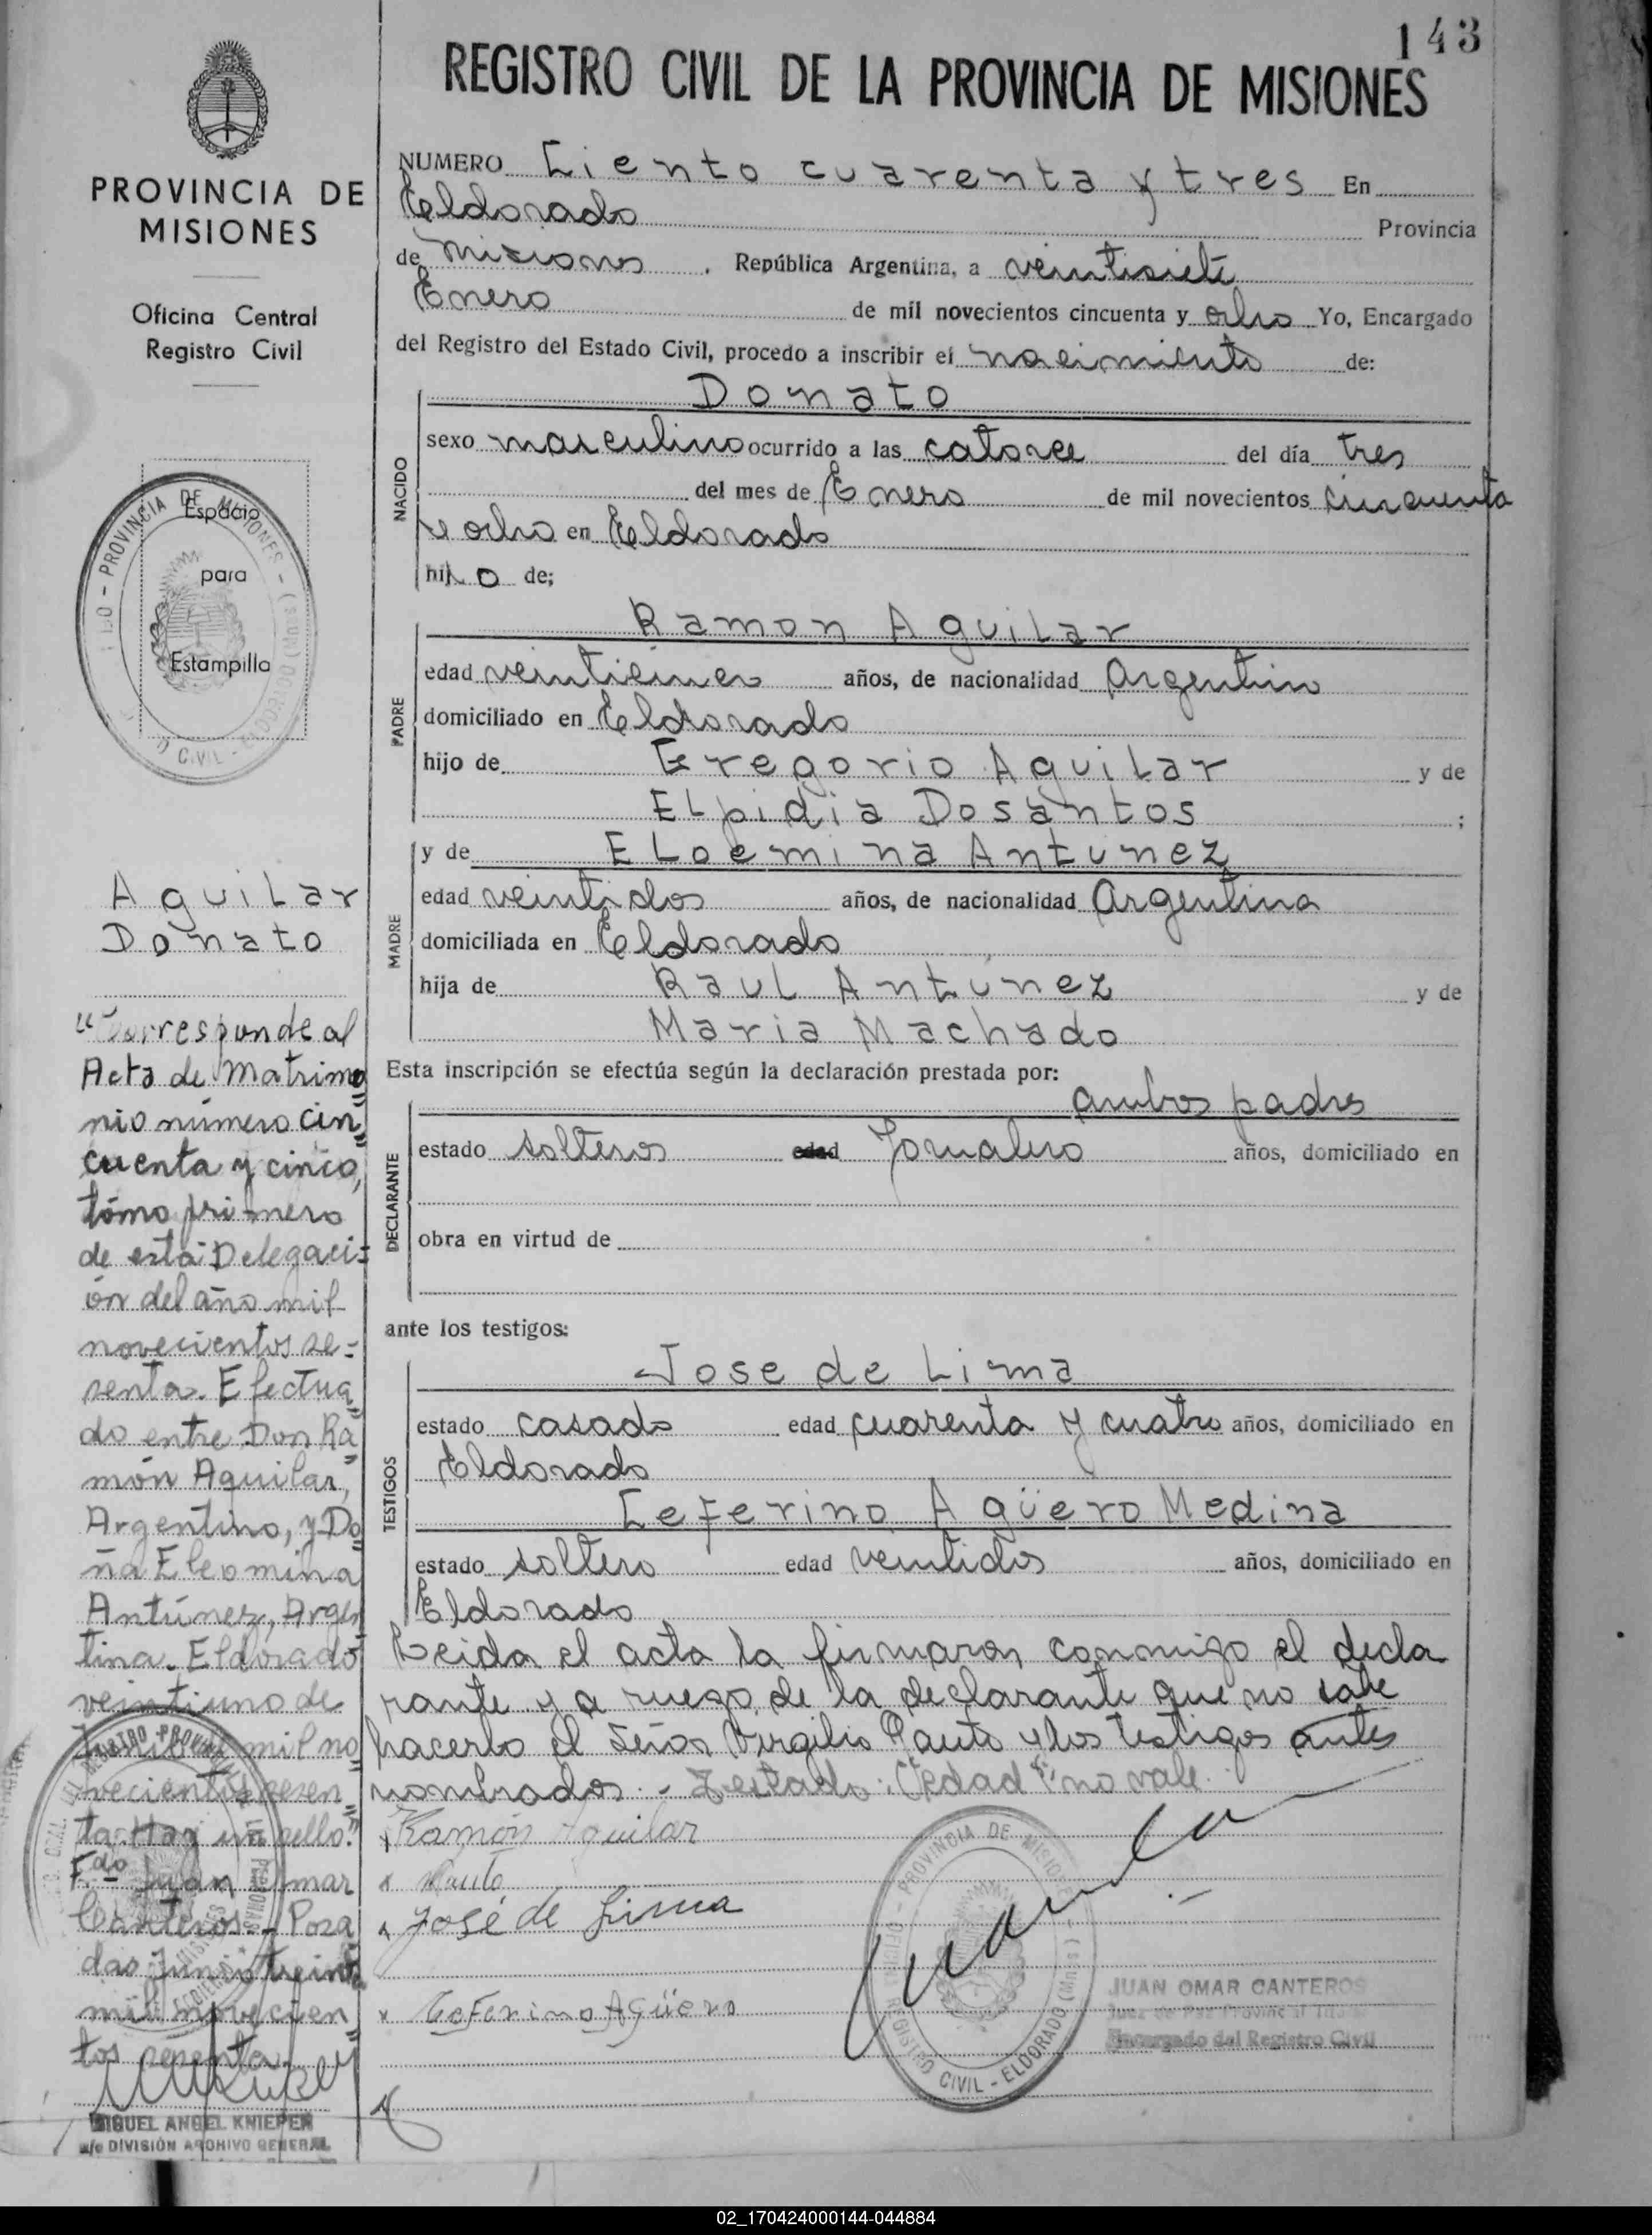 143
REGISTRO CIVIL DE LA PROVINCIA DE MISIONES
PROVINCIA DE
MISIONES
Oficina Central
Registro Civil
NUMERO Ciento cuarenta y tres En
Eldorado Provincia
de Misiones, República Argentina, a veintisiete
Enero de mil novecientos cincuenta y ocho Yo, Encargado
del Registro del Estado Civil, procedo a inscribir el nacimiento de:
Donato
NACIDO
sexo masculino ocurrido a las catorce del día tres
del mes de Enero de mil novecientos cincuenta
y ocho en Eldorado
hijo de;
Espacio
para
Estampilla
PROVINCIA DE MISIONES
Ramon Aguilar
PADRE
edad veintiun años, de nacionalidad Argentino
domiciliado en Eldorado
hijo de Gregorio Aguilar y de
Elpidia Dosantos ;
y de Eloemina Antunez
MADRE
edad veintidos años, de nacionalidad Argentina
domiciliada en Eldorado
hija de Raul Antunez y de
Maria Machado
Aguilar
Donato
"Corresponde al
Acta de Matrimo
nio número cin
cuenta y cinco,
tómo primero
de esta Delegaci=
ón del año mil
novecientos se=
senta. Efectua
do entre Don Ra
món Aguilar,
Argentino, y Do
ña Eleomina
Antúnez, Argen
tina. Eldorado
veintiuno de
mil no
vecientos sesen
ta. Hay un sello."
Fdo Juan Omar
Canteros.- Posa
das Junio treinta
mil novecien
tos sesenta.
MIGUEL ANGEL KNIEPER
a/c DIVISIÓN ARCHIVO GENERAL
Esta inscripción se efectúa según la declaración prestada por:
ambos padres
DECLARANTE
estado solteros edad Jornalero años, domiciliado en
obra en virtud de
ante los testigos:
TESTIGOS
Jose de Lima
estado casado edad cuarenta y cuatro años, domiciliado en
Eldorado
Ceferino Agüero Medina
estado soltero edad veintidos años, domiciliado en
Eldorado
Leida el acta la firmaron conmigo el decla
rante y a ruego de la declarante que no sabe
hacerlo el Señor Virgilio Pauto y los testigos antes
nombrados.- Testado: "edad": no vale.
x Ramón Aguilar
x Pauto
x José de Lima
x Ceferino Agüero
PROVINCIA DE MISIONES
REGISTRO CIVIL - ELDORADO (Mnes.)
JUAN OMAR CANTEROS
Juez de Paz Provincial
Encargado del Registro Civil
02_170424000144-044884